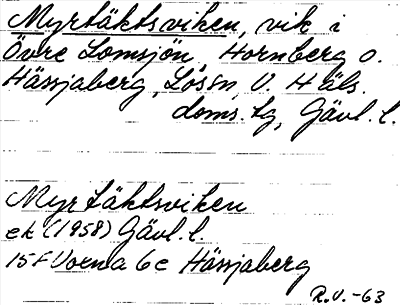 Myrtäktsviken, vik i
Övre Lomsjön, Hornberg o.
Hässjaberg, Los sn, V. Häls.
doms. lg, Gävl. l.
Myrtäktsviken
ek (1958) Gävl. l.
15F Vorna 6c Hässjaberg
R.V. -63